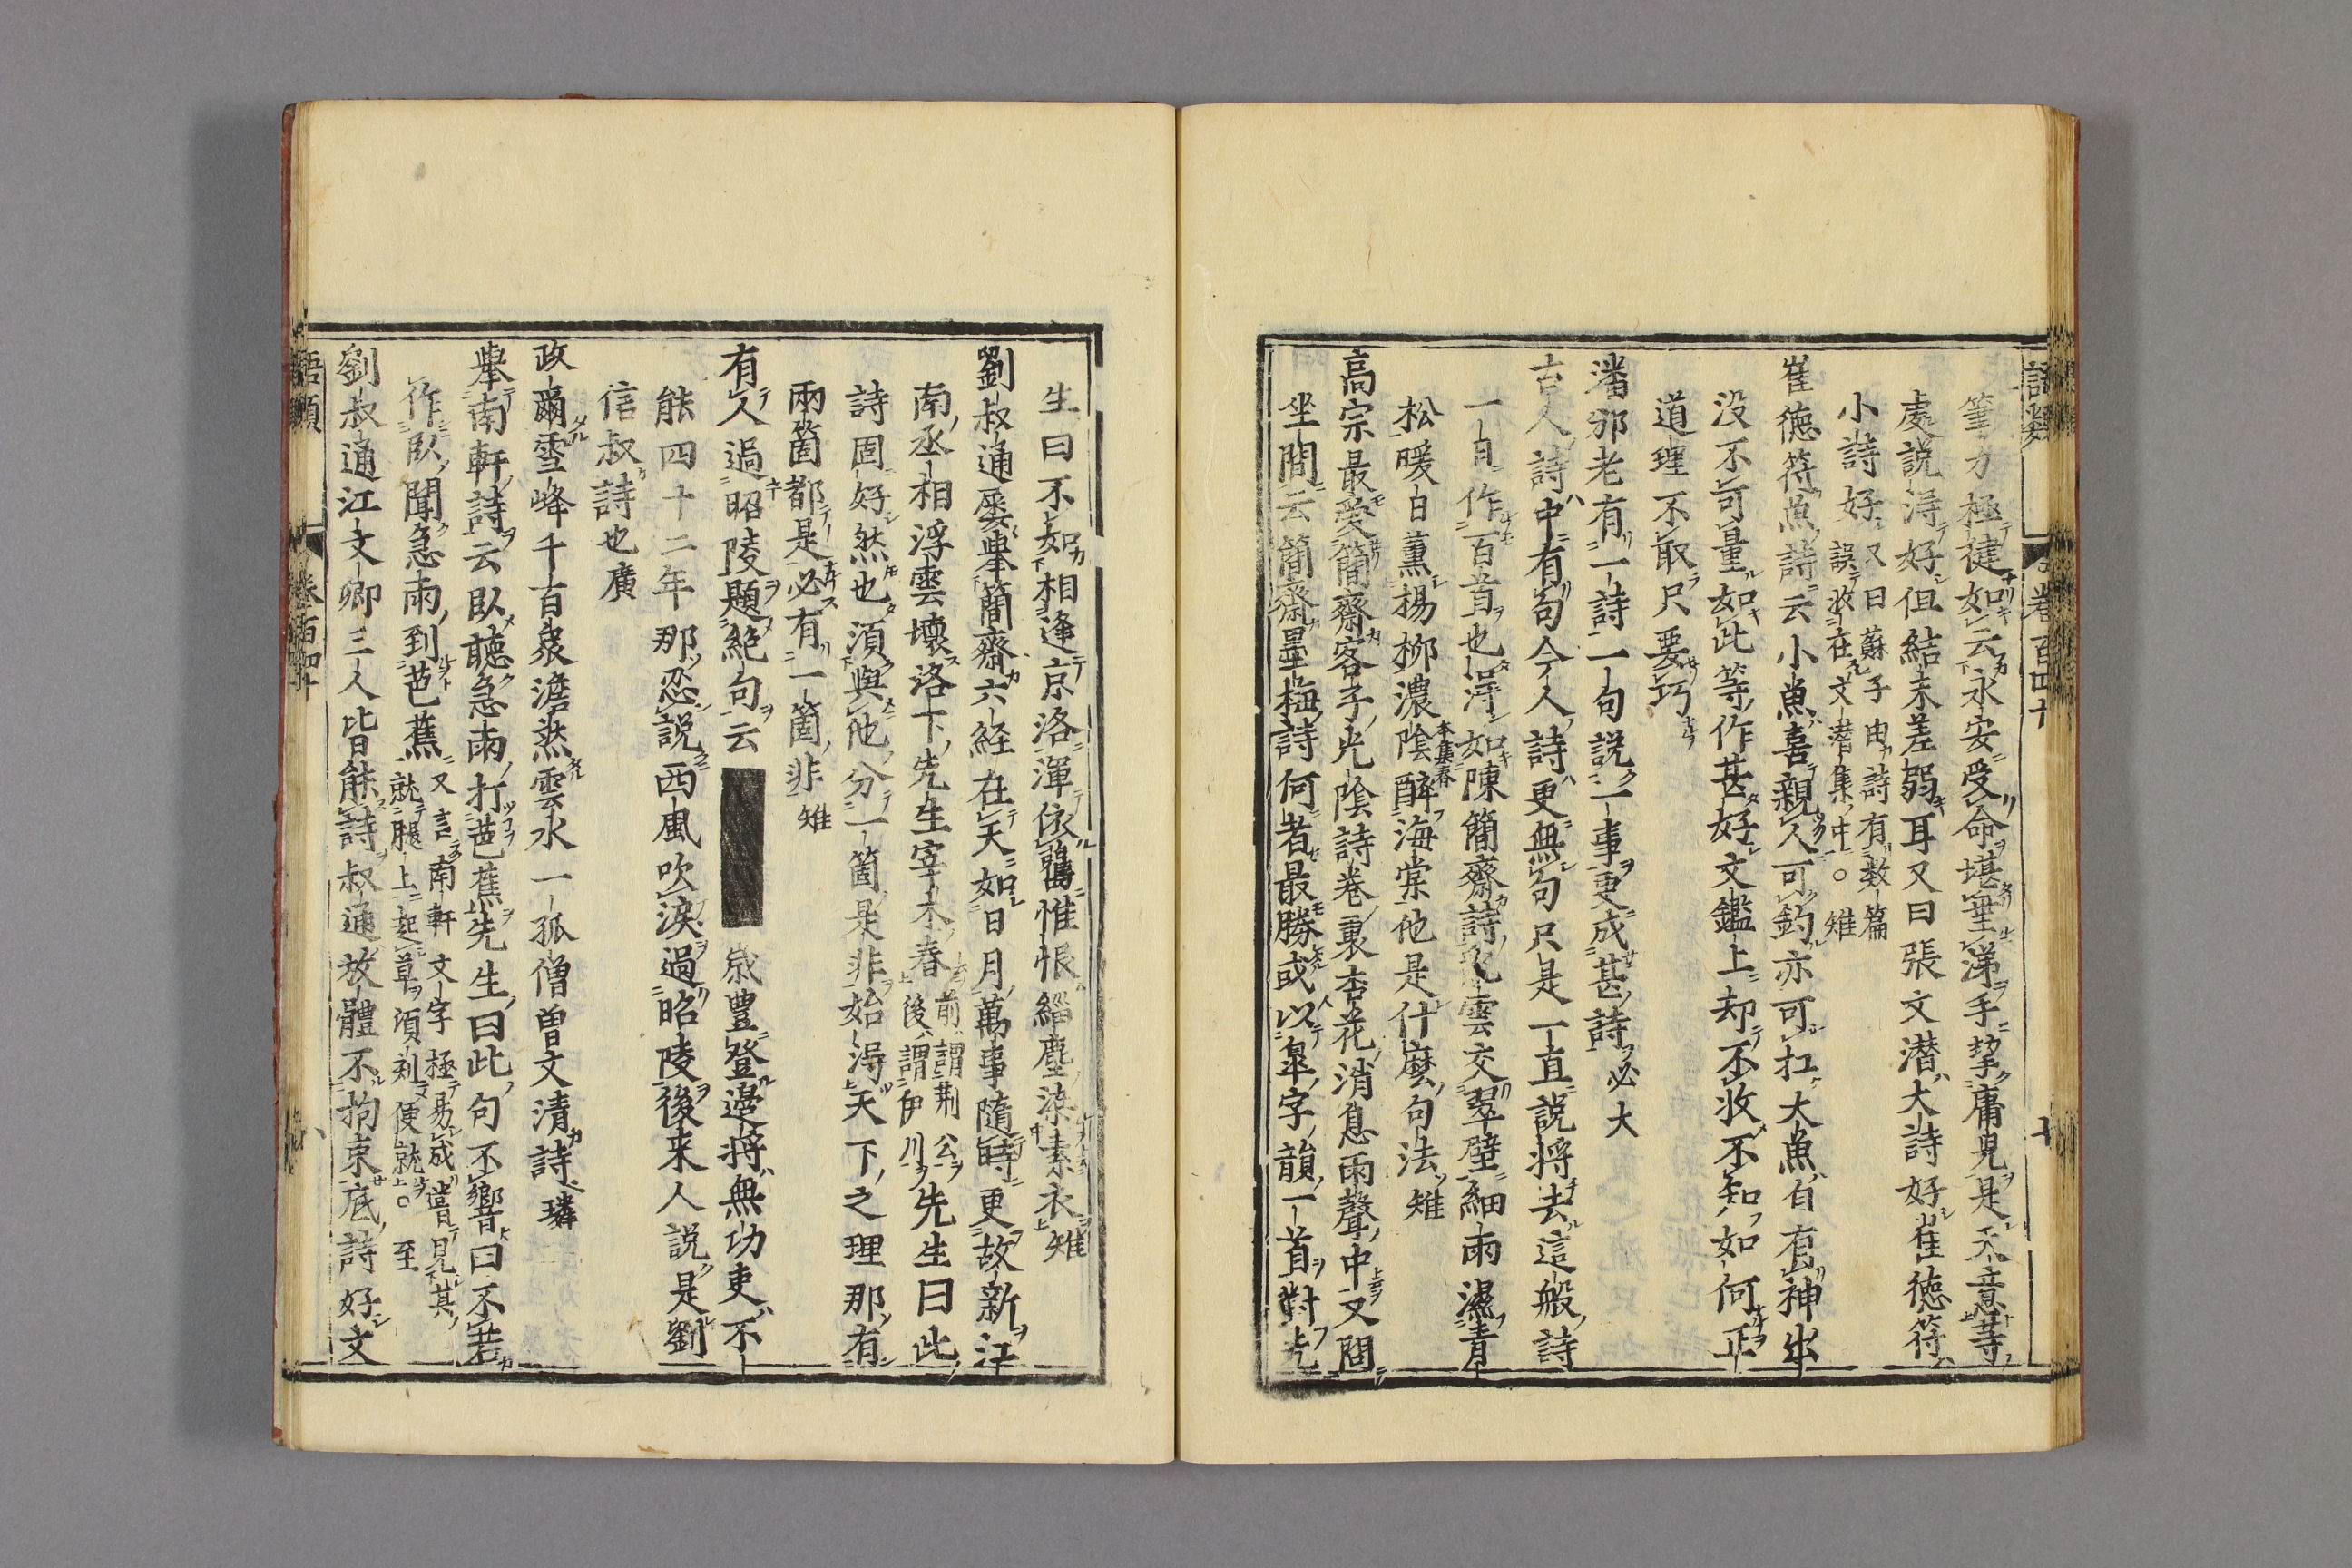 語類 卷百四十 十
筆力極健如云永安受命堪垂涕手挈庸兒是天意等
處説得好但結末差弱耳又曰張文潜大詩好崔徳符
小詩好又曰蘇子由詩有数篇誤收在文潜集中○雉
崔徳符魚詩云小魚喜親人可釣亦可扛大魚自有神出
没不可量如此等作甚好文鑑上却不收不知如何正
道理不取只要巧
潘邠老有一詩一句説一事更成甚詩必大
古人詩中有句今人詩更無句只是一直説將去這般詩
一日作百首也得如陳簡齋詩乱雲交翠壁細雨濕青
松暖日薰楊柳濃陰醉海棠他是什麼句法雉
本集春
高宗最愛簡齋客子光陰詩卷裏杏花消息雨聲中又問
坐間云簡齋墨梅詩何者最勝或以皐字韻一首對先
生曰不如相逢京洛渾依舊惟恨緇塵染素衣雉
劉叔通屡舉簡齋六経在天如日月萬事隨時更故新江
南丞相浮雲壞洛下先生宰木春前謂荆公後謂伊川先生曰此
詩固好然也須與他分一箇是非始得天下之理那有
兩箇都是必有一箇非雉
有人過昭陵題絶句云 歳豊登邉將無功吏不
能四十二年那忍説西風吹涙過昭陵後来人説是劉
信叔詩也廣
政爾雪峰千百衆澹然雲水一孤僧曽文清詩璘
舉南軒詩云卧聽急雨打芭蕉先生曰此句不響曰不若
作卧聞急雨到芭蕉又言南軒文字極易成嘗見其就腿上起草須刹便就○至
劉叔通江文卿二人皆能詩叔通放體不拘束底詩好文
語類 卷百四十